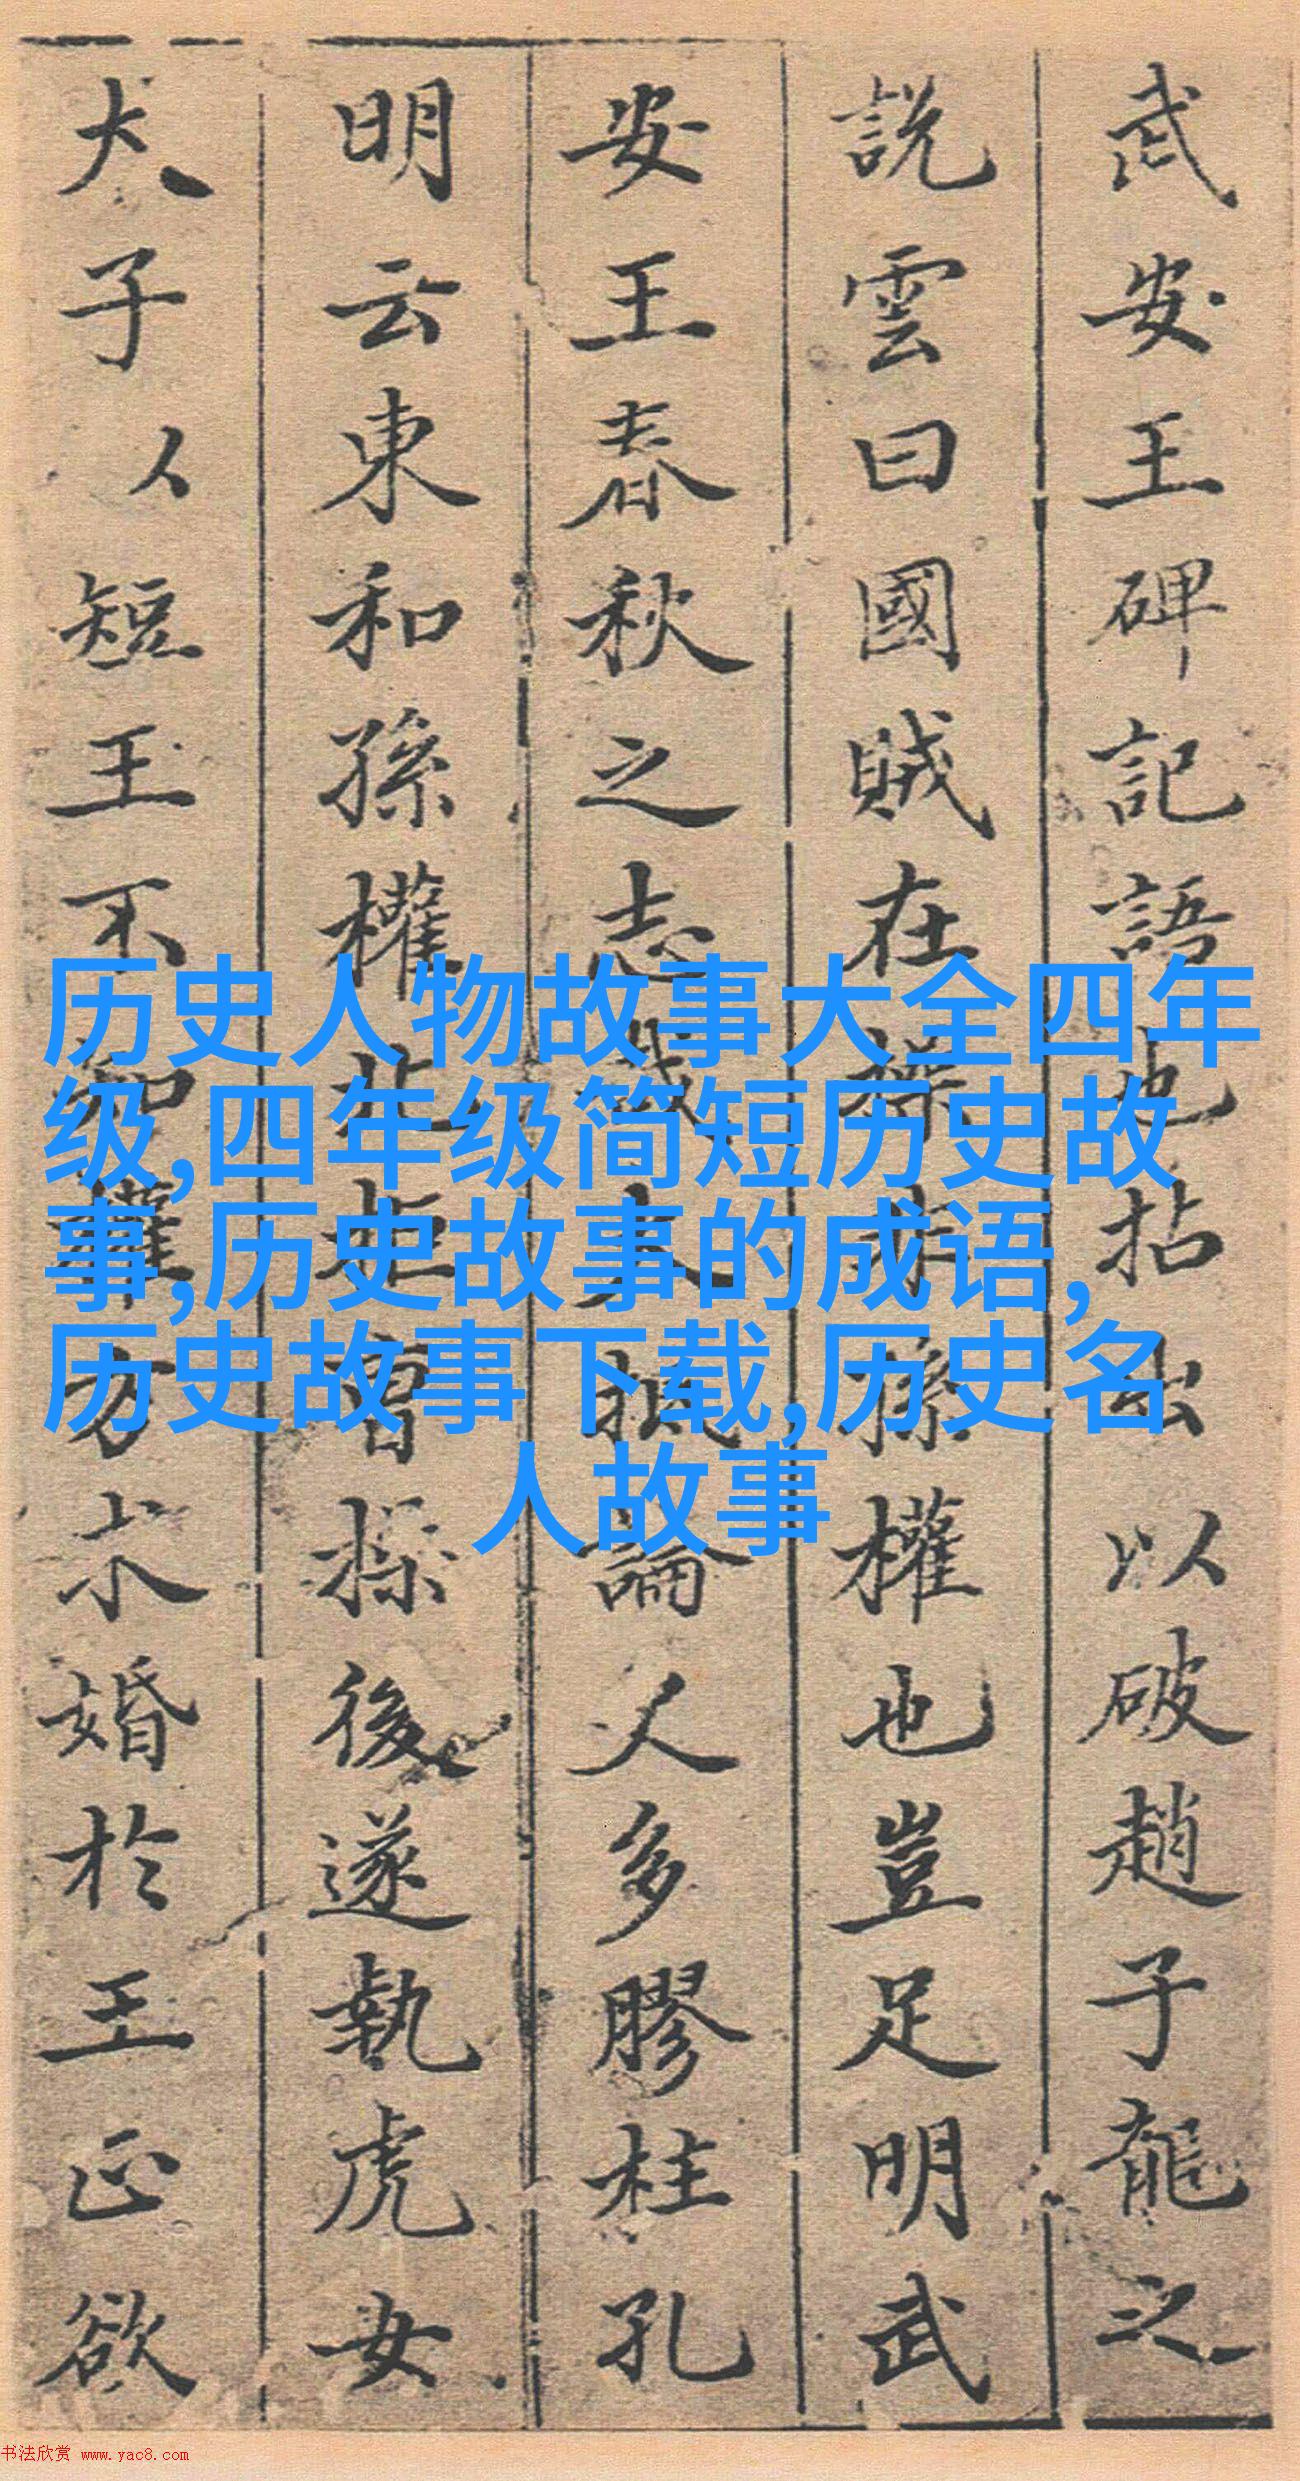 武安王碑記語也拈出以破趙子龍之
說雲曰國賊在操非孫權也豈足明武
安王春秋之志哉人抵論人多膠柱孔
明云東和孫權北拒曹操後遂執虎女
大子人短王不知權方求婚於王正欲
历史人物故事大全四年
级,四年级简短历史故
事,历史故事的成语,
历史故事下载,历史名
人故事
书法欣赏 www.yac8.com